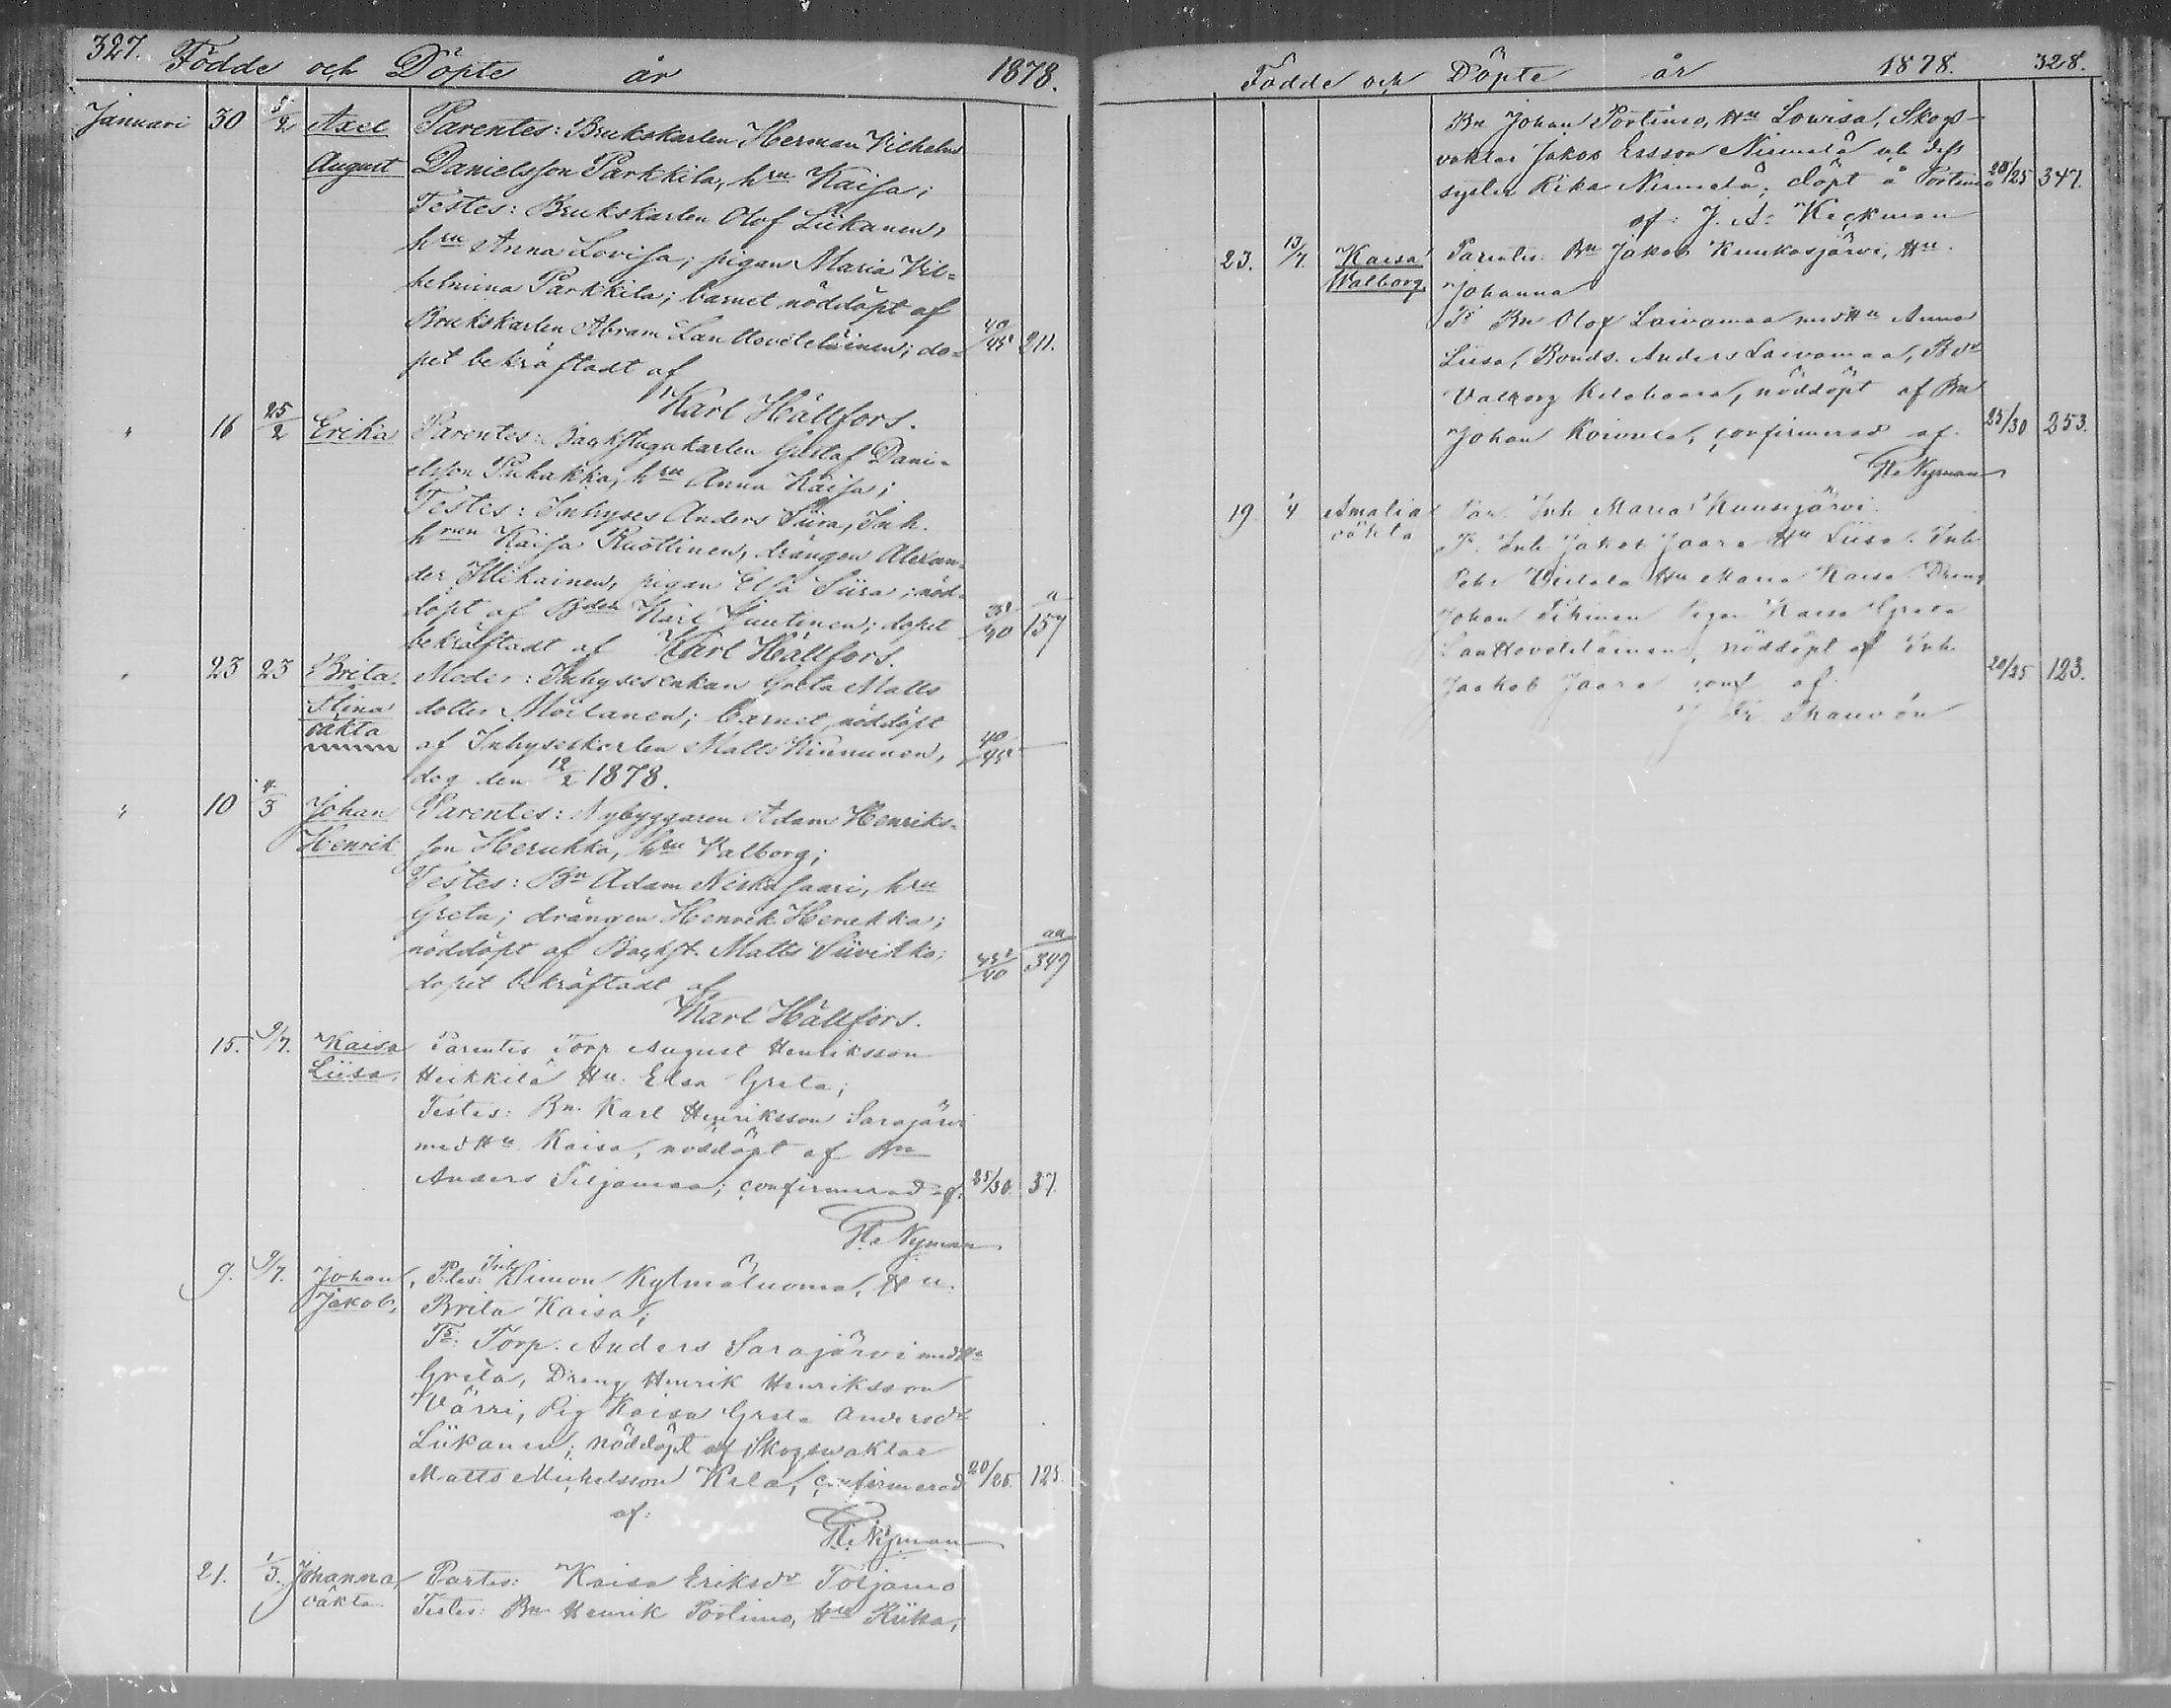 327. Födde och Döpte år 1878.
Januari 30 5/2 Axel Parentes: Brukskarlen Herman Vilhelm
August Danielsson Parkkila, hru Kaisa;
Testes: Brukskarlen Olof Liikanen,
hru Anna Lovisa; pigan Maria Vil-
helmina Parkkila; barnet nöddöpt af
Brukskarlen Abram Lanttoväteläinen; do- 40/45 211.
pet bekräftadt af
Karl Hällfors.
" 16 25/2 Erika Parentes: Backstugukarlen Gustaf Dani-
elsson Puhakka, hru Anna Kaisa;
Testes: Inhyses Anders Siira, Inh.
hrun Kaisa Ruottinen, drängen Alexan-
der Illikainen, pigan Elsa Siira; nöd-
döpt af Bden Karl Juntinen; dopet 35/40 157
bekräftadt af Karl Hällfors.
" 23 23 Brita Moder: Inhysesenkan Greta Matts
Stina dotter Moilanen; barnet nöddöpt
oäkta af Inhyseskarlen Matts Kinnunen, 40/45
dog den 12/2 1878.
" 10 4/3 Johan Parentes: Nybyggaren Adam Henriks-
Henrik son Herukka, hru Valborg;
Testes: Bn Adam Niskasaari, hru
Greta; drängen Henrik Herukka;
nöddöpt af Backst. Matts Siivikko; 35/40 349
dopet bekräftadt af
Karl Hällfors.
15. 9/7. Kaisa Parentes Torp August Henriksson
Liisa. Heikkilä Hu. Elsa Greta;
Testes: Bn. Karl Henriksson Sarajärvi
med Hu Kaisa, nöddöpt af Bn
Anders Siljamaa; confirmerad af. 25/30. 37.
H. Nyman
9. 9/7. Johan, Ptes: Inh Simon Kylmäluoma, Hu.
Jakob, Brita Kaisa;
Ts: Torp. Anders Sarajärvi med Hu
Greta, Dreng Henrik Henriksson
Värri, Pig Kaisa Greta Andersdr
Liikanen; nöddöpt af Skogswaktar
Matts Michelsson Kela, confirmerad 20/25. 125.
af: H. Nyman
21. 1/3. Johanna Partes: Kaisa Eriksdr Toljamo
oäkta Testes: Bn Henrik Portimo, Hru Riika,
Födde och Döpte år 1878. 328.
Bn Johan Portimo, Hru Lowisa, Skogs-
vaktar Jakob Ersson Niemelä och dess
syster Rika Niemelä; döpt å Portimo 20/25 347.
af: J. A. Keckman
23. 13/7. Kaisa Parentes: Bn Jakob Kunkasjärvi, Hu.
Walborg, Johanna
Ts Bn Olof Laivamaa med Hu Anna
Liisa, Bonds. Anders Laivamaa, Bdr
Valborg Kelahaara, nöddöpt af Bn
Johan Koivula, confirmerad af. 25/30 253.
H. Nyman
19. 4 Amalia Par. Inh Maria Kuusijärvi.
oäkta Ts. Inh Jakob Jaara Hu Liisa. Inh
Pehr Hu Maria Kaisa. Dreng
Johan Pigan Kaisa Greta
Lanttovätiläinen, nöddöpt af Inh
Jaakob Jaara conf af. 20/25 123.